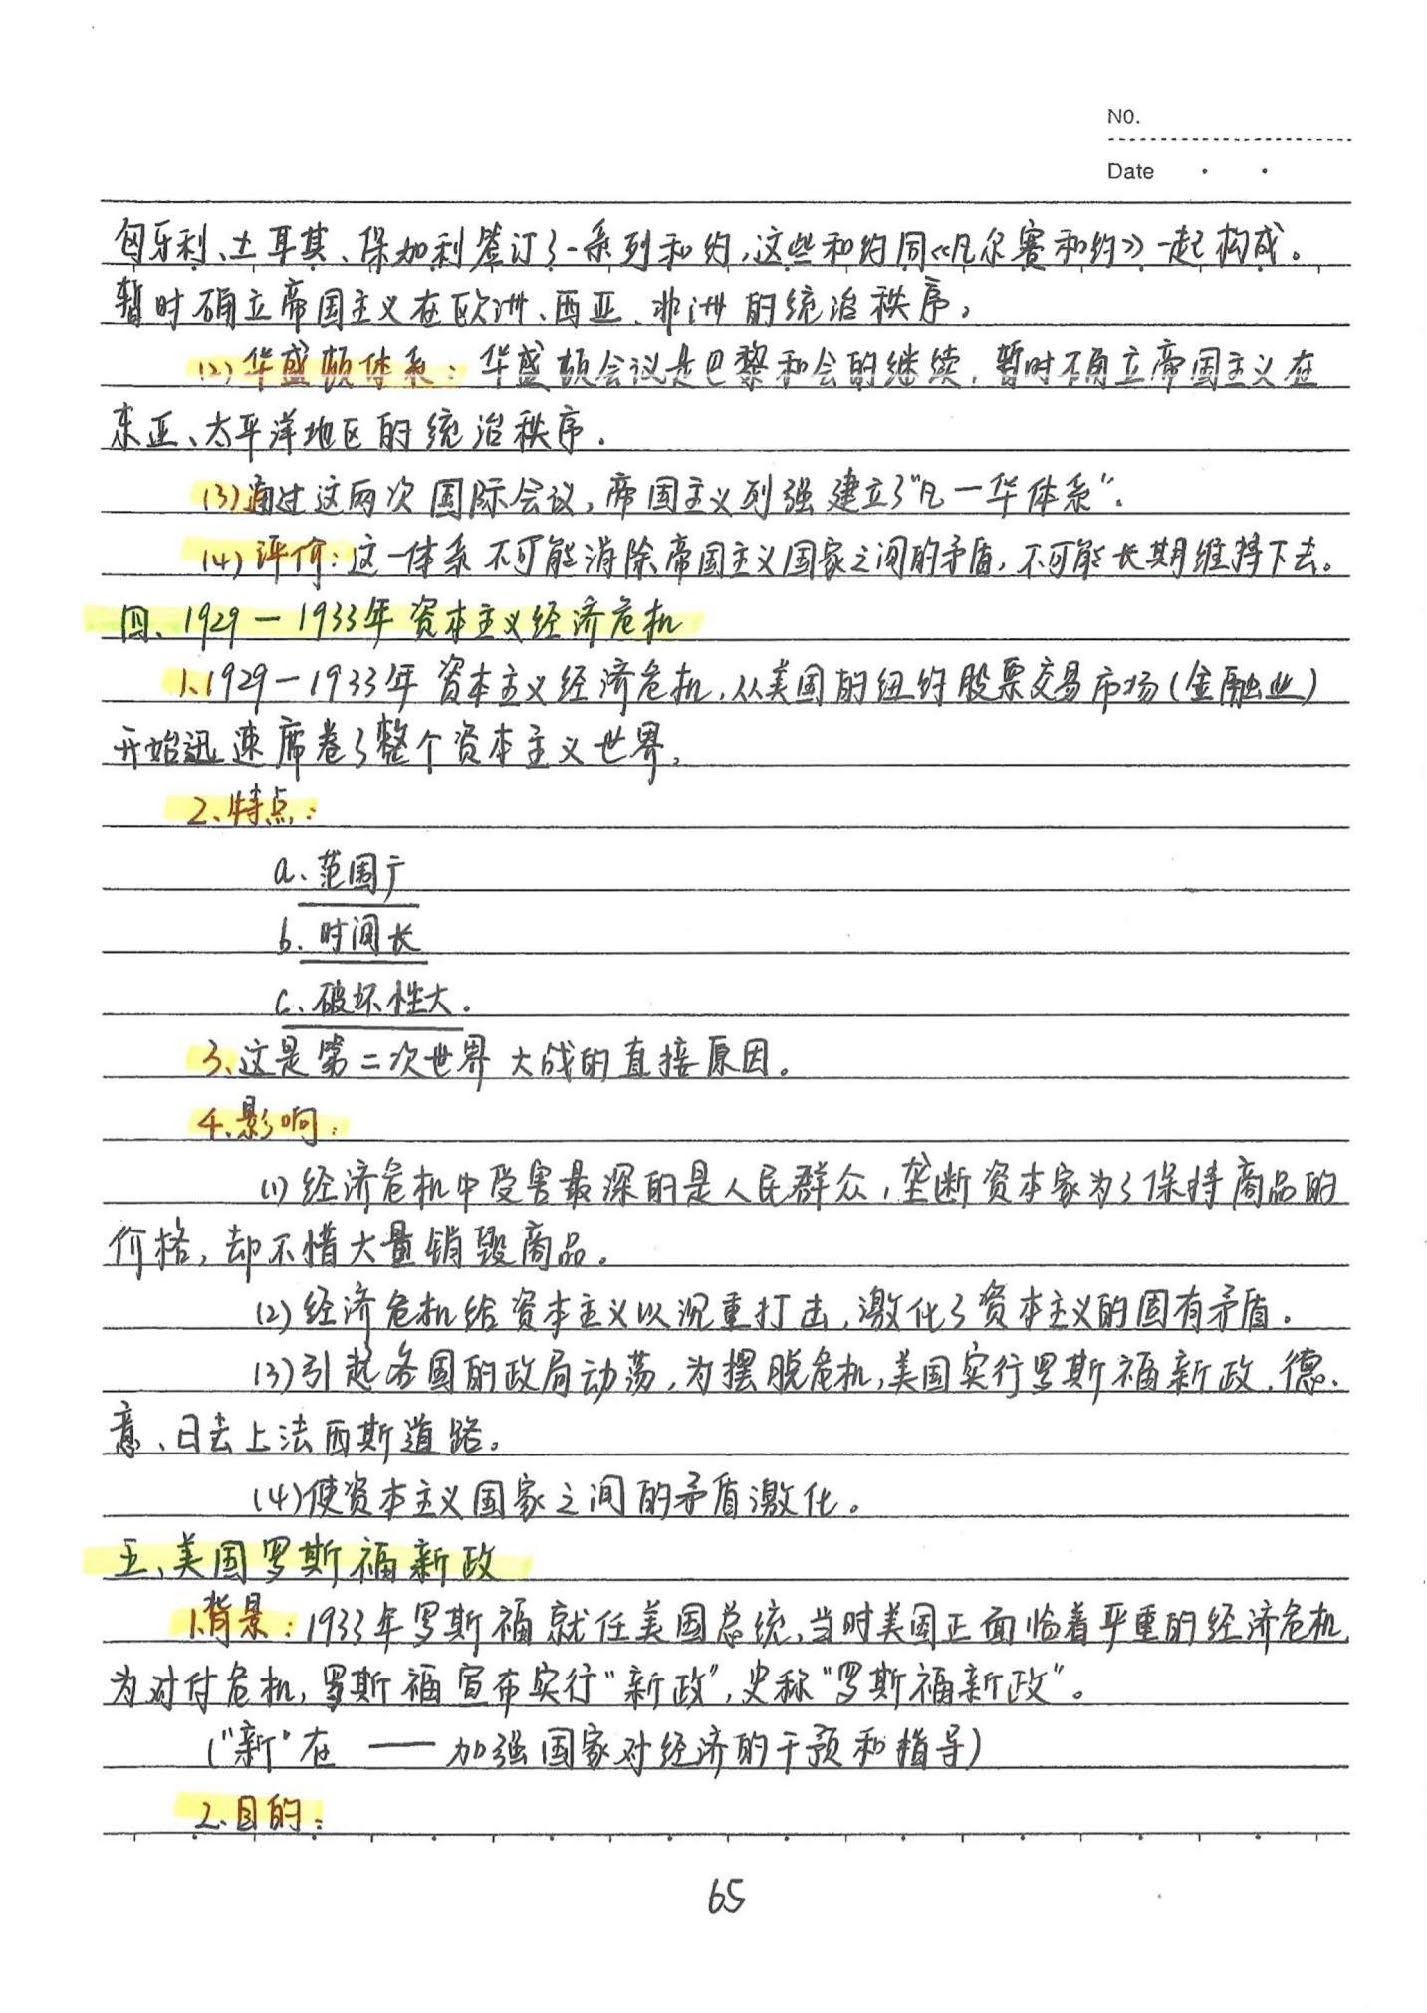 NO.
Date
匈牙利、土耳其、保加利签订了一系列和约,这些和约同《凡尔赛和约》一起构成。
暂时确立帝国主义在欧洲、西亚、非洲的统治秩序。
(2)华盛顿体系:华盛顿会议是巴黎和会的继续,暂时确立帝国主义在
东亚、太平洋地区的统治秩序.
(3)通过这两次国际会议,帝国主义列强建立了"凡一华体系".
(4)评价:这一体系不可能消除帝国主义国家之间的矛盾,不可能长期维持下去。
四、1929-1933年资本主义经济危机
1、1929-1933年资本主义经济危机,从美国的纽约股票交易市场(金融业)
开始迅速席卷了整个资本主义世界。
2、特点:
a、范围广
b、时间长
c、破坏性大.
3、这是第二次世界大战的直接原因。
4、影响:
(1)经济危机中受害最深的是人民群众,垄断资本家为了保持商品的
价格,却不惜大量销毁商品。
(2)经济危机给资本主义以沉重打击,激化了资本主义的固有矛盾。
(3)引起各国的政局动荡,为摆脱危机,美国实行罗斯福新政,德、
意、日去上法西斯道路。
(4)使资本主义国家之间的矛盾激化。
五、美国罗斯福新政
1.背景:1933年罗斯福就任美国总统,当时美国正面临着严重的经济危机
为对付危机,罗斯福宣布实行"新政",史称"罗斯福新政"。
("新"在——加强国家对经济的干预和指导)
2、目的:
65